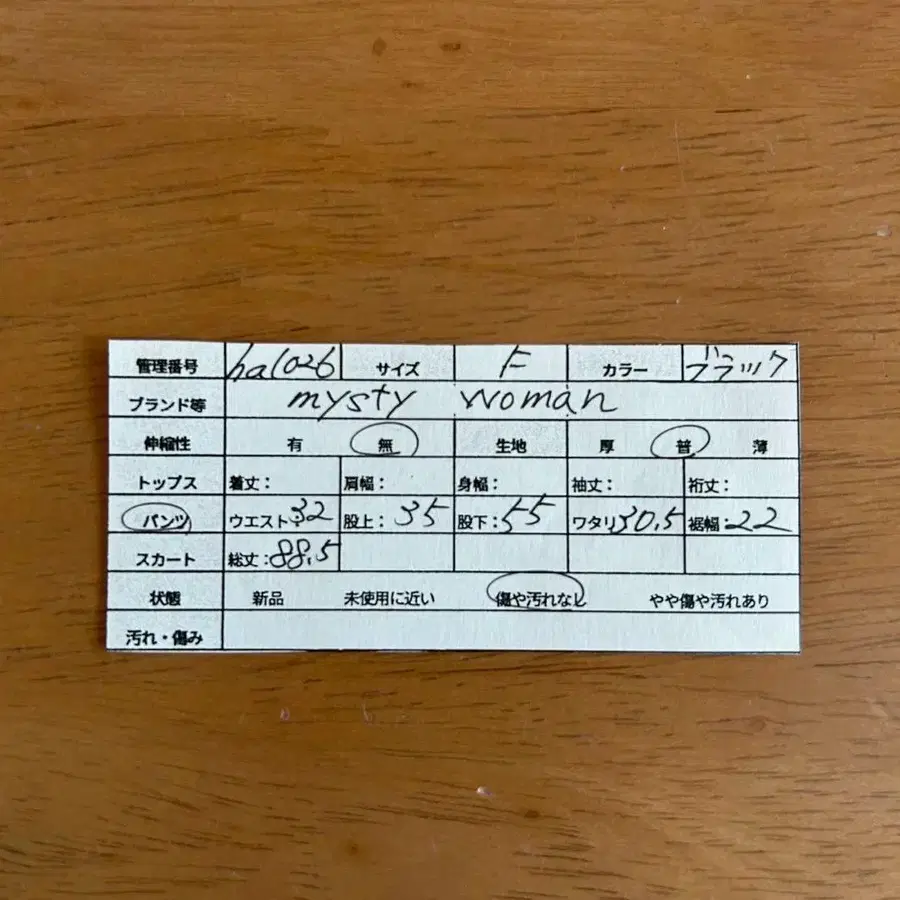 管理番号 hal026 サイズ F カラー ブラック
ブランド等 mysty woman
伸縮性 有 無 生地 厚 普 薄
トップス 着丈: 肩幅: 身幅: 袖丈: 裄丈:
パンツ ウエスト:32 股上:35 股下:55 ワタリ30.5 裾幅:22
スカート 総丈:88.5
状態 新品 未使用に近い 傷や汚れなし やや傷や汚れあり
汚れ・傷み